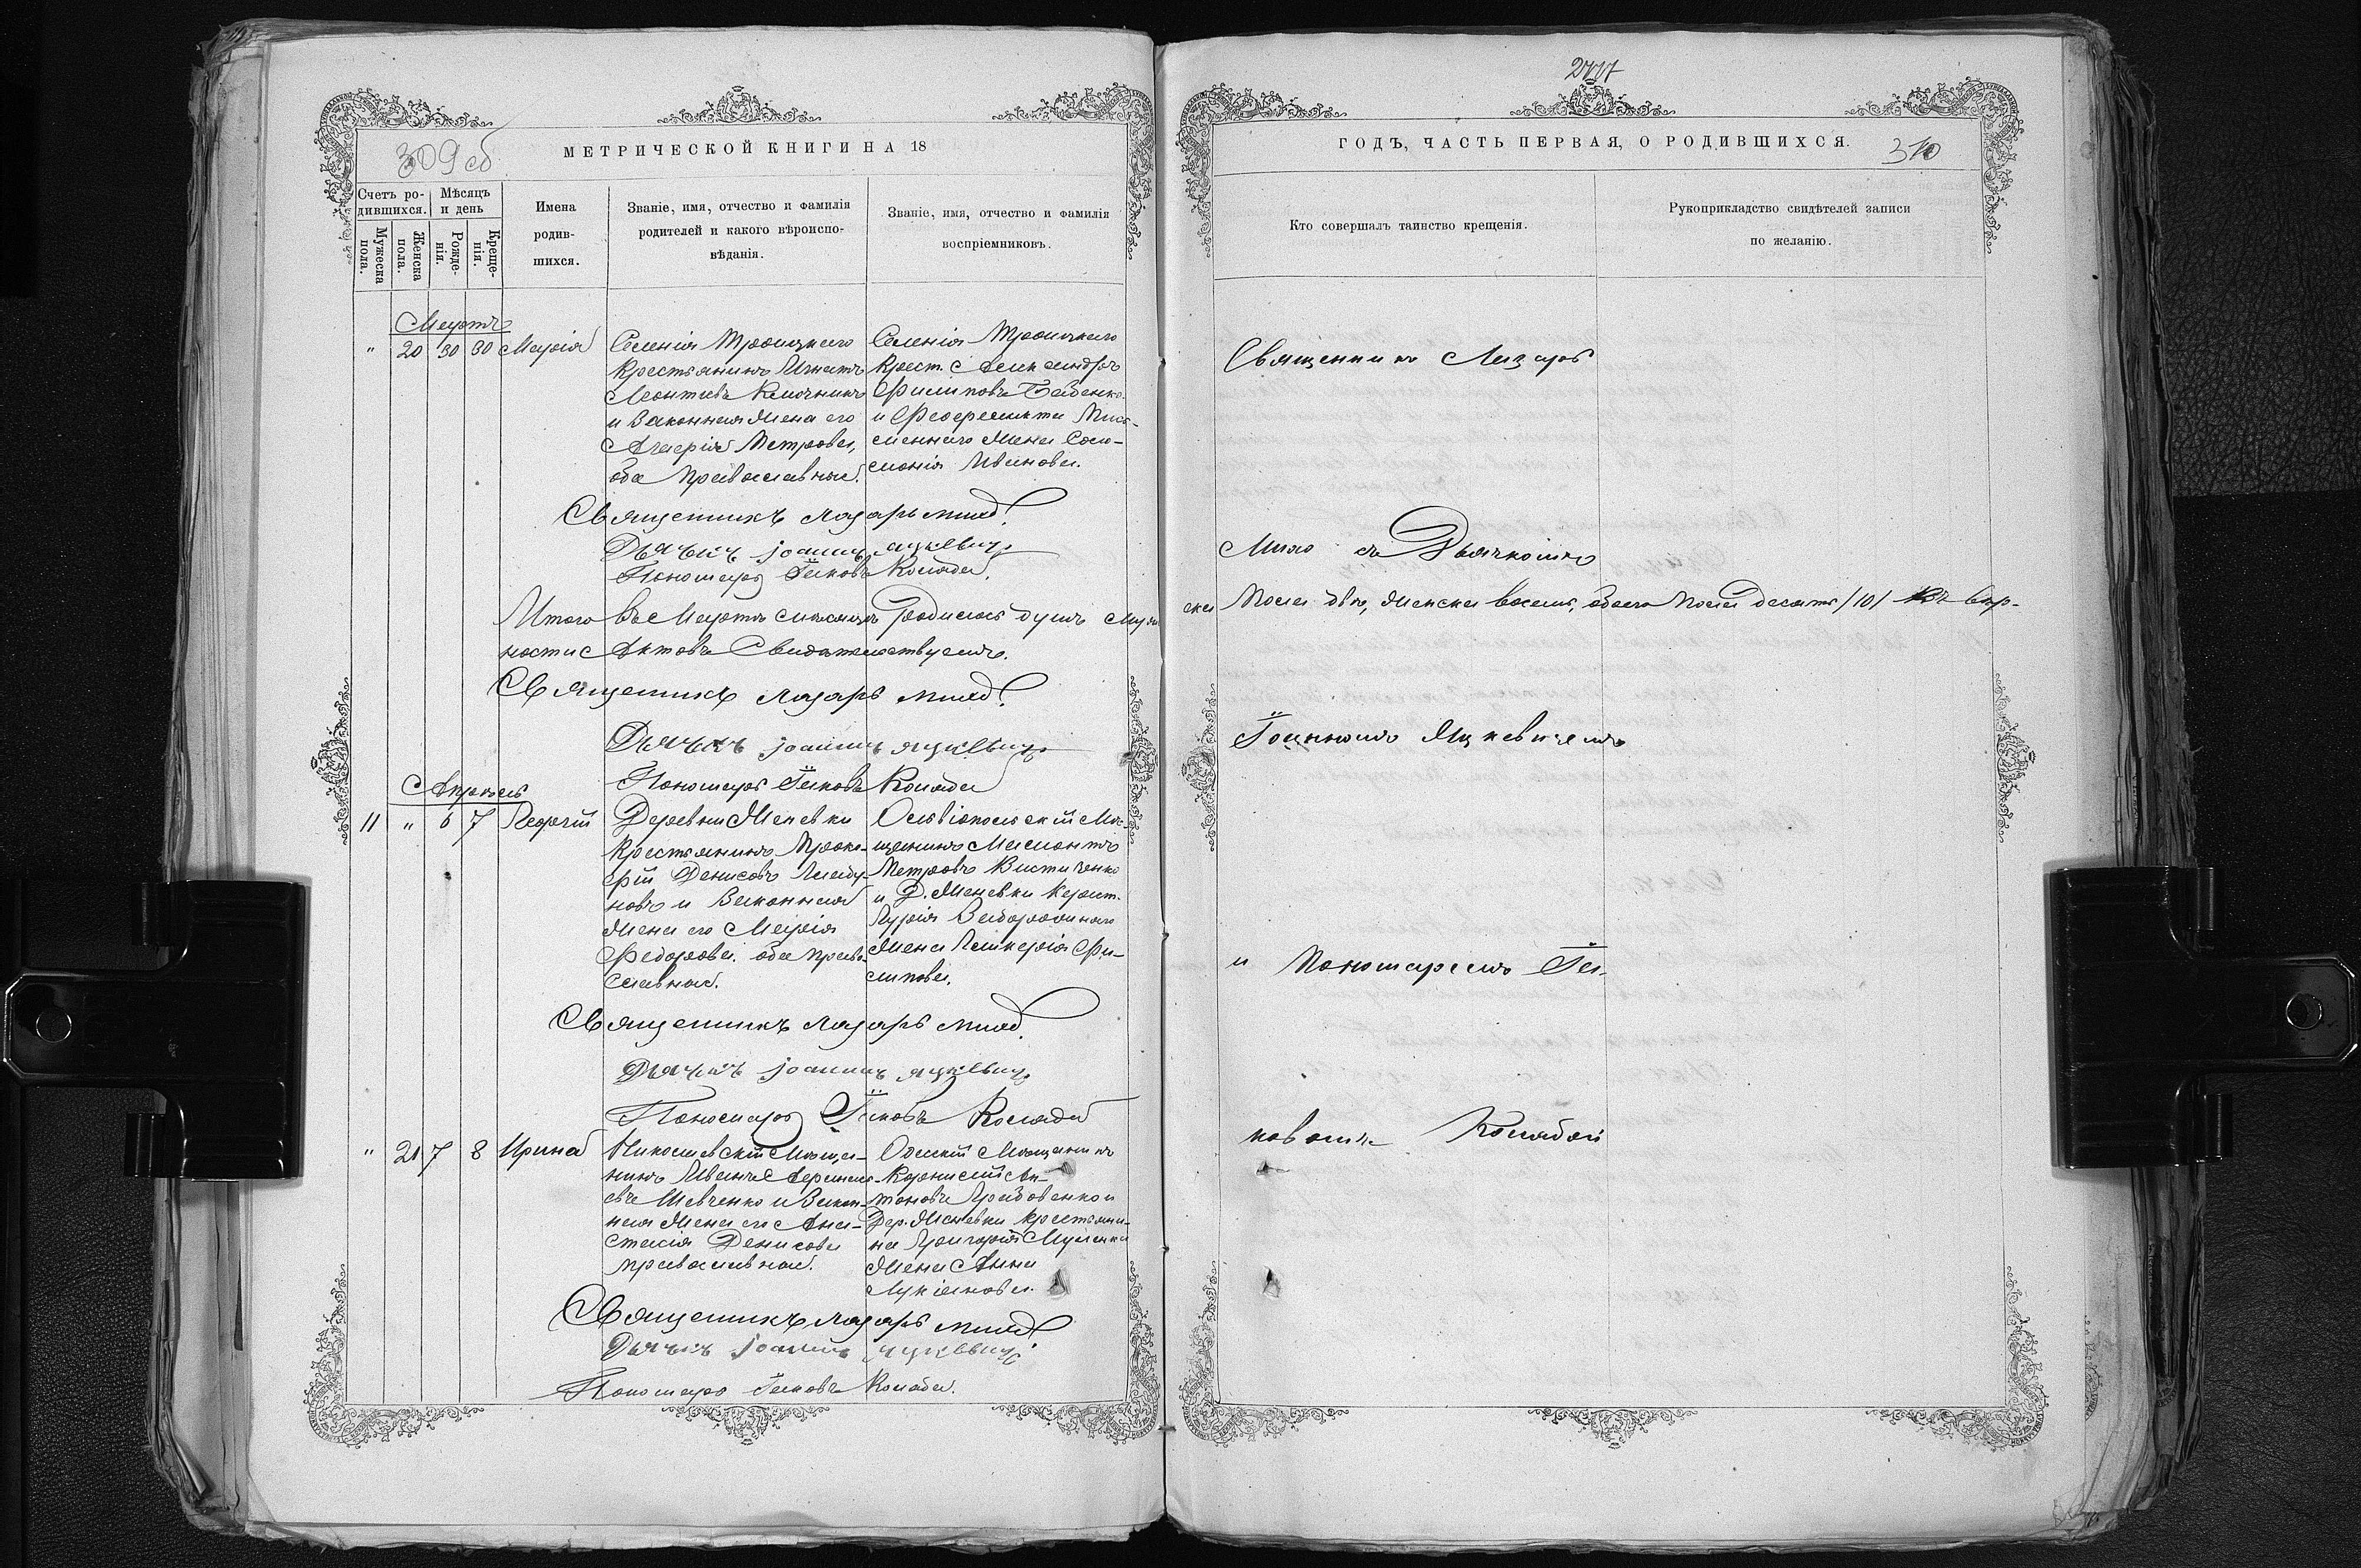 309 об
МЕТРИЧЕСКОЙ КНИГИ НА 18
Счетъ родившихся.
Мѣсяцъ и день
Мужеска пола.
Женска пола.
Рожденія.
Крещенія.
Имена родившихся.
Званіе, имя, отчество и фамилія
родителей и какого вѣроиспо-
вѣданія.
Званіе, имя, отчество и фамилія
воспріемниковъ.
Мартъ
" 20 30 30 Марія
Селенія Троицкаго
крестьянинъ Игнатъ
Леонтіевъ Ключникъ
и Законная Жена его
Агафія Петрова,
оба Православные.
Селенія Троицкаго
Крест. Александръ
Филиповъ
и Феофилакта Пись-
меннаго Жена Соло-
монія Иванова.
Священникъ Лазарь
Дьячекъ Іоаннъ Яцкевичъ
Пономарь Іаковъ Коляда.
Итого въ Мартѣ Мѣсяцѣ Родилось душъ Муже
ности Актовъ Свидѣтельствуемъ.
Священникъ Лазарь
Дьячекъ Іоаннъ Яцкевичъ
Пономарь Іаковъ Коляда
Апрѣль
11 " 6 7 Георгій
Деревни Меневки
крестьянинъ Проко-
фій Денисовъ
новъ и Законная
Жена его Марія
Федорова. оба Право-
славные.
Ольвіопольскій Мѣ-
щанинъ Мамонтъ
Петровъ
и Д. Меневки Крест.
Гурія
Жена Гликерія Фи-
липова.
Священникъ Лазарь
Дьячекъ Іоаннъ Яцкевичъ
Пономарь Іаковъ Коляда
" 21 7 8 Ирина
Николаевскій Мѣща-
нинъ Иванъ Герасимо-
евъ Шевченко и Закон-
ная Жена его Ана-
стасія Денисова
православные.
Одескій Мѣщанинъ
Корнилій Ан-
тоновъ Грабовенко и
Дер. Меневки крестьяни-
на Григорія
Жена Анна
Лукіянова.
Священникъ Лазарь
Дьячекъ Іоаннъ Яцкевичъ
Пономарь Іаковъ Коляда.
ГОДЪ, ЧАСТЬ ПЕРВАЯ, О РОДИВШИХСЯ.
310
Кто совершалъ таинство крещенія.
Рукоприкладство свидѣтелей записи
по желанію.
Священникъ Лазарь
съ Дьячкомъ
ска Пола два, Женска восемь, обоего Пола десять /10/ Въ вѣр-
Іоанномъ Яцкевичемъ
и Пономаремъ Іа-
ковомъ Колядой